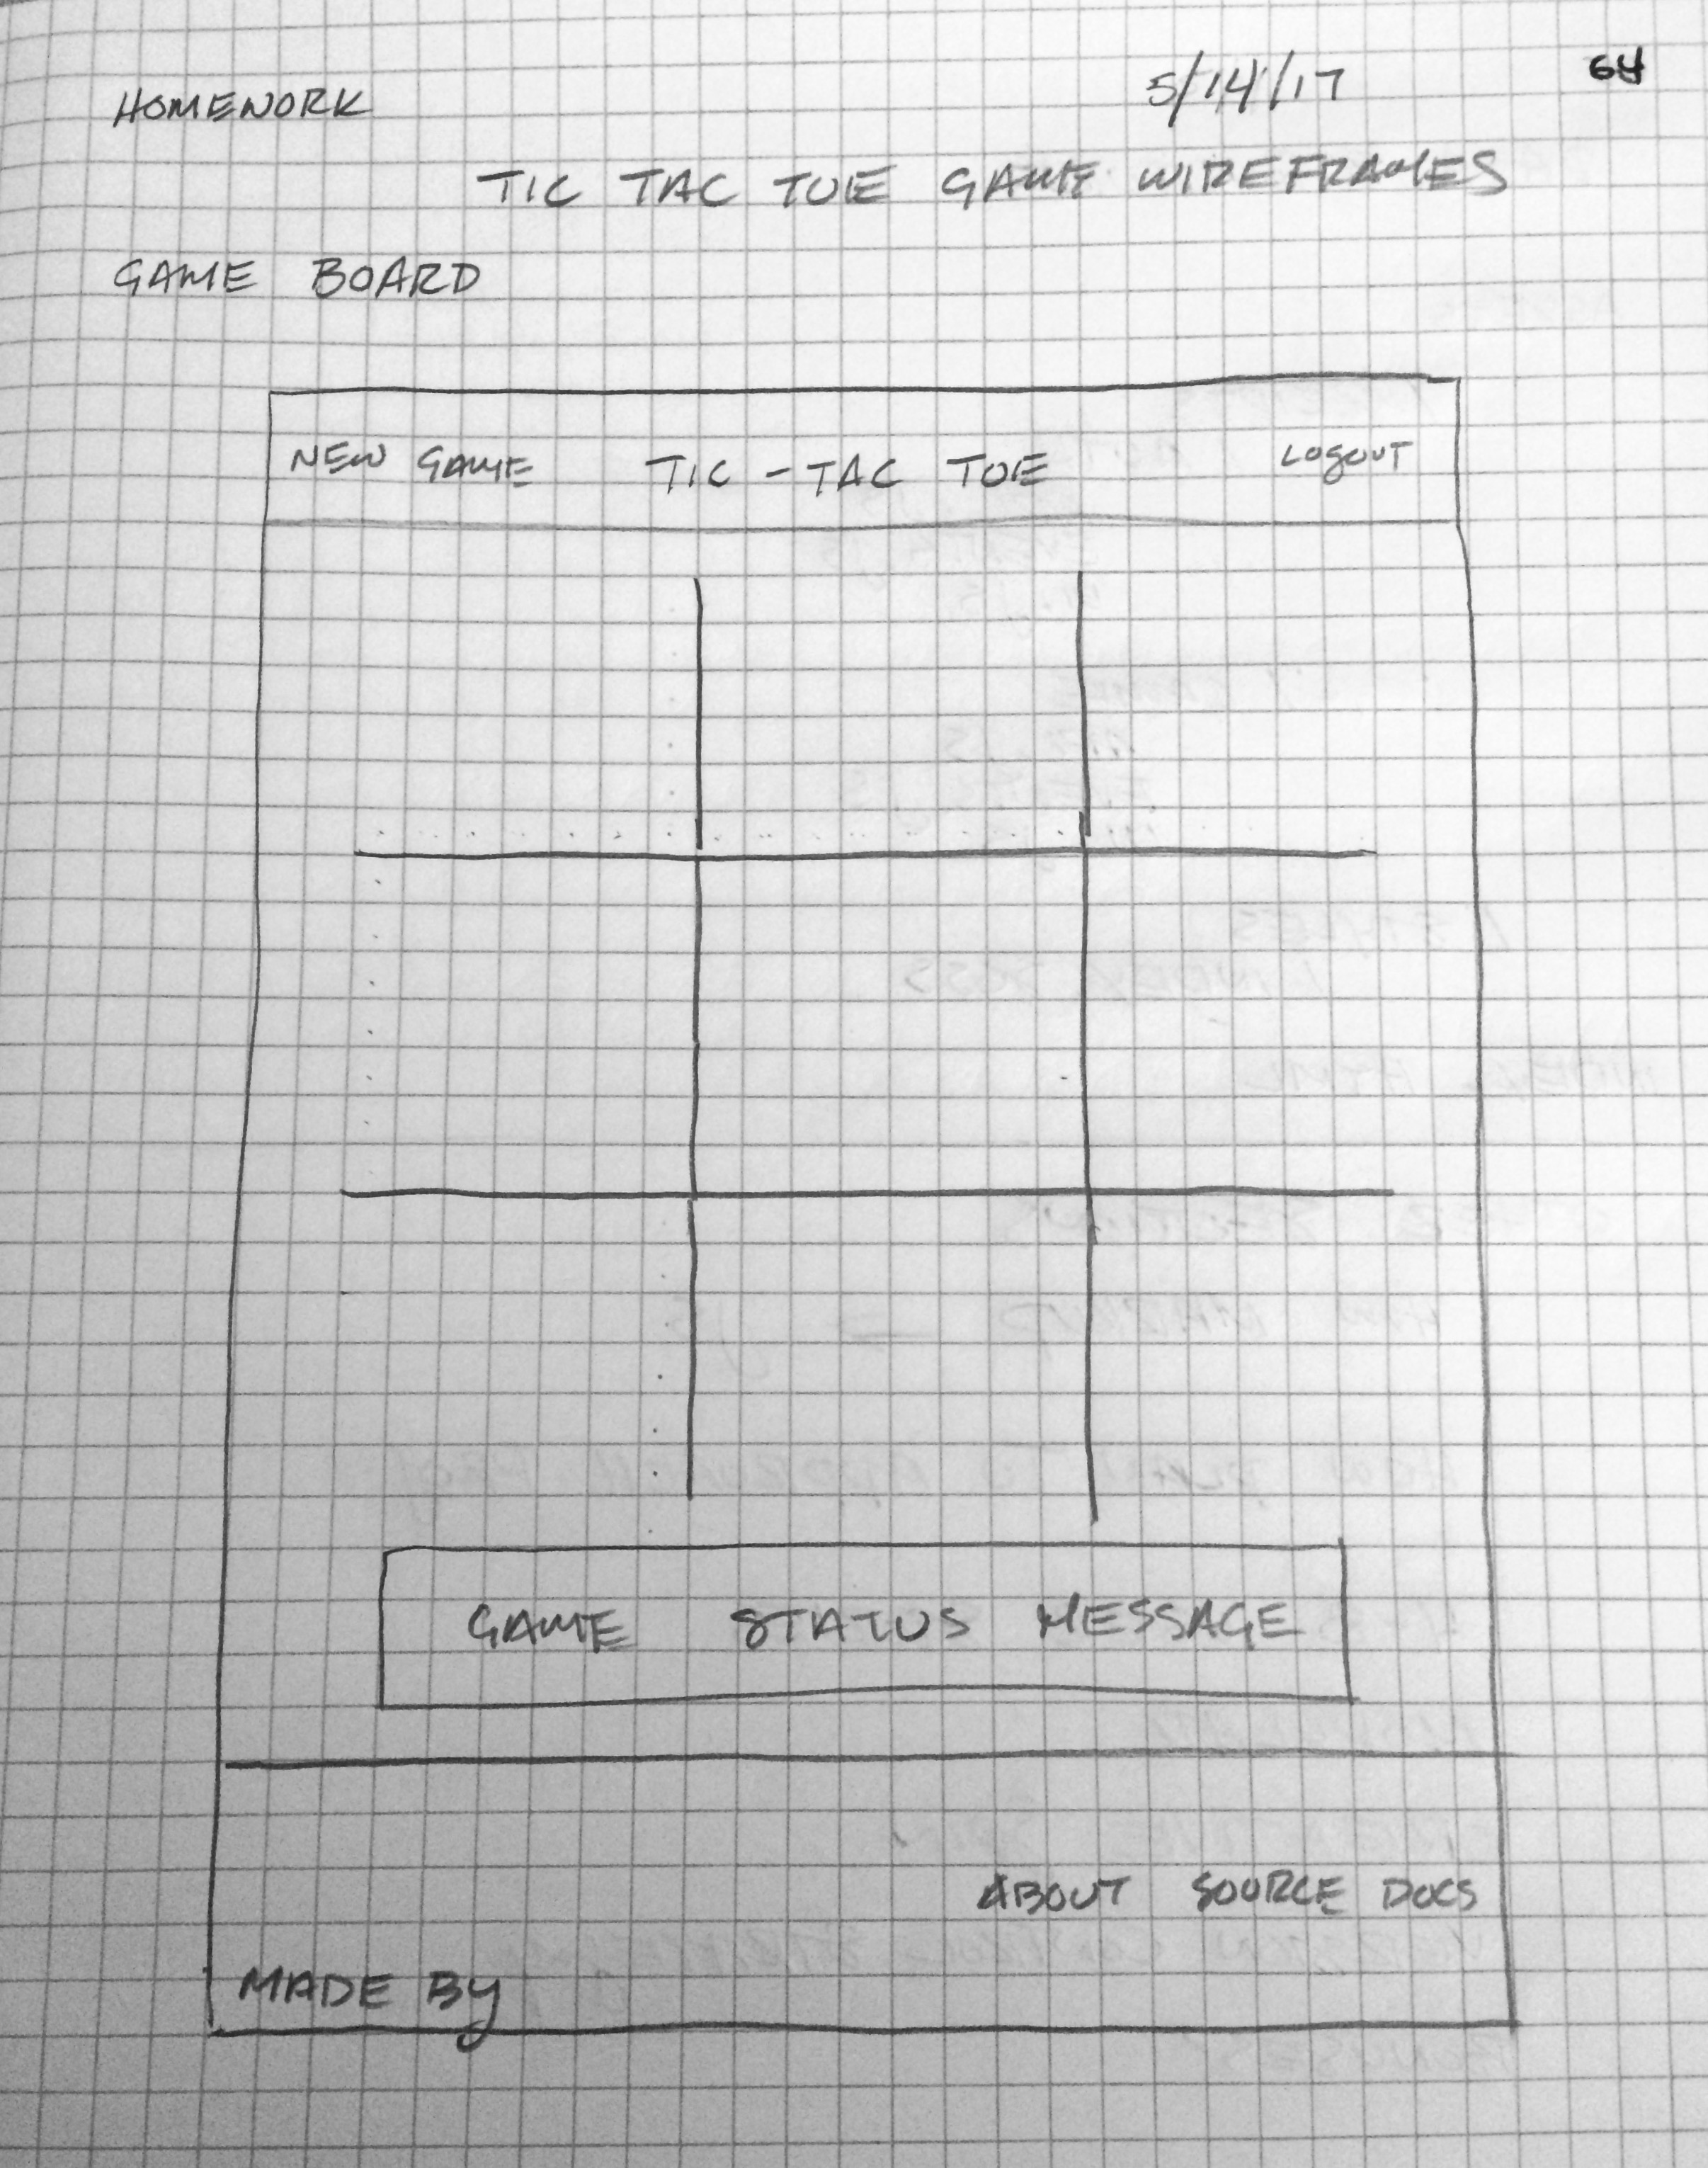 HOMEWORK 5/14/17 64
TIC TAC TOE GAME WIREFRAMES
GAME BOARD
NEW GAME TIC - TAC TOE LOGOUT
GAME STATUS MESSAGE
ABOUT SOURCE DOCS
MADE BY